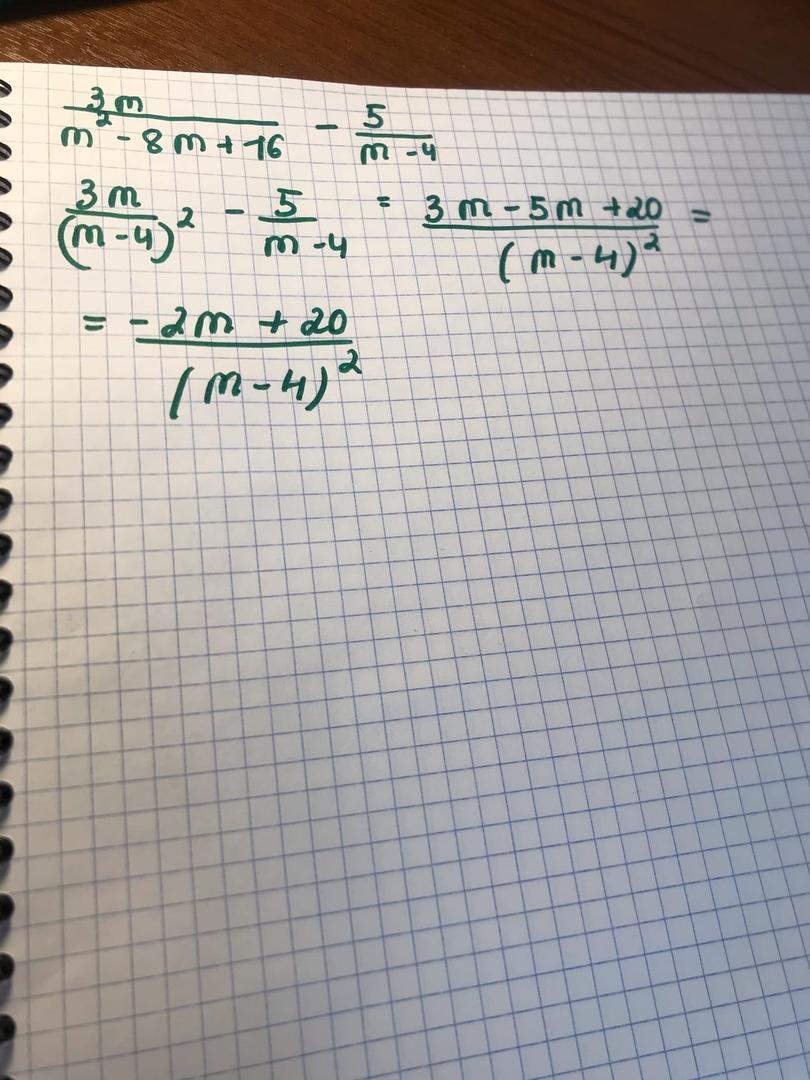 3m/(m² - 8m + 16) - 5/(m - 4)
3m/(m - 4)² - 5/(m - 4) = (3m - 5m + 20)/(m - 4)² =
= (-2m + 20)/(m - 4)²